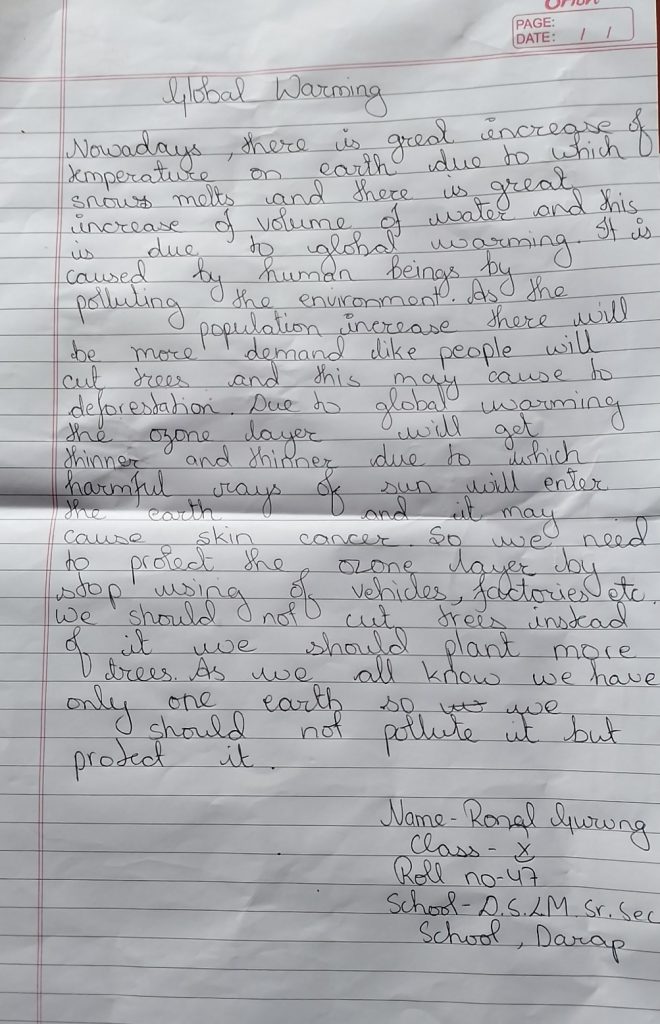 ORION
PAGE:
DATE: / /
Global Warming
Nowadays, there is great increase of
temperature on earth due to which
snows melts and there is great
increase of volume of water and this
is due to global warming. It is
caused by human beings by
polluting the environment. As the
population increase there will
be more demand like people will
cut trees and this may cause to
deforestation. Due to global warming
the ozone layer will get
thinner and thinner due to which
harmful rays of sun will enter
the earth and it may
cause skin cancer. So we need
to protect the ozone layer by
stop using of vehicles, factories etc.
We should not cut trees instead
of it we should plant more
trees. As we all know we have
only one earth so we
should not pollute it but
protect it.
Name - Ronal Gurung
Class - X
Roll no-47
School - D.S.LM. Sr. Sec
School, Darap